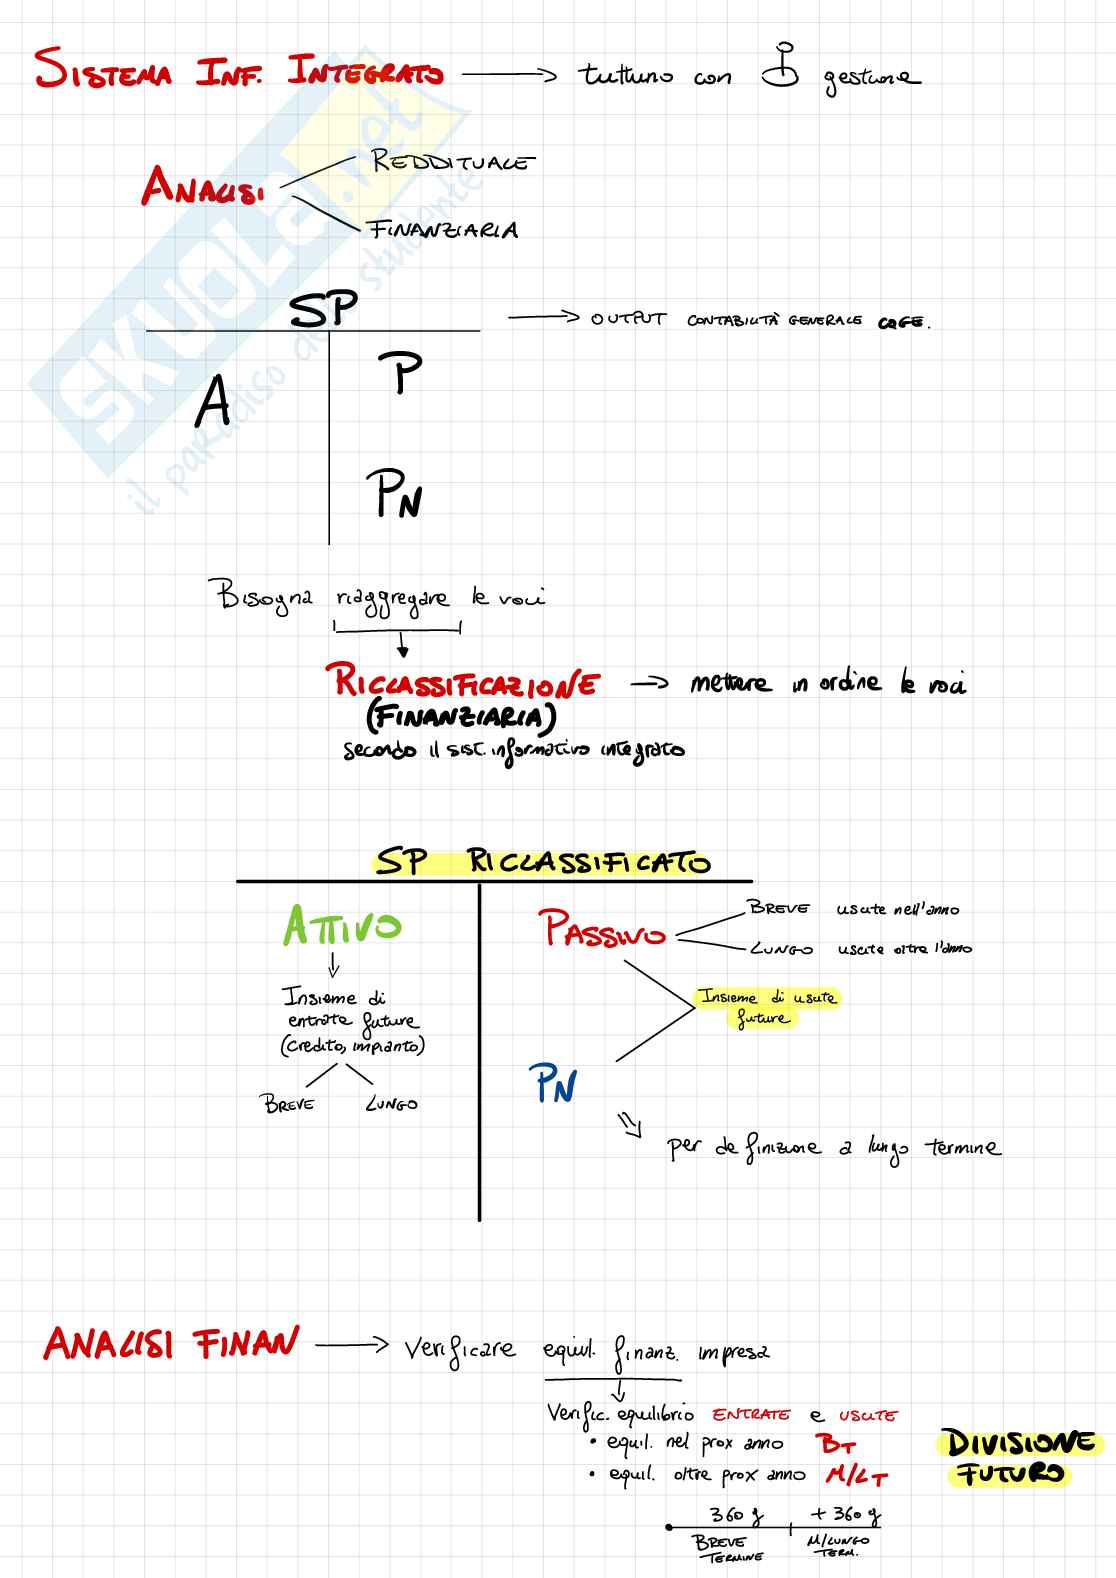 SISTEMA INF. INTEGRATO → tutt'uno con gestione
ANALISI
REDDITUALE
FINANZIARIA
SKUOLA.net
il paradiso dello studente
SP → OUTPUT CONTABILITÀ GENERALE COGE.
A
P
PN
Bisogna riaggregare le voci
RICLASSIFICAZIONE → mettere in ordine le voci
(FINANZIARIA)
secondo il sist. informativo integrato
SP RICLASSIFICATO
ATTIVO
Insieme di
entrate future
(credito, impianto)
BREVE LUNGO
PASSIVO
BREVE uscite nell'anno
LUNGO uscite oltre l'anno
Insieme di uscite
future
PN
per definizione a lungo termine
ANALISI FINAN → Verificare equil. finanz. impresa
Verific. equilibrio ENTRATE e USCITE
• equil. nel prox anno BT
• equil. oltre prox anno M/LT
DIVISIONE
FUTURO
360 g + 360 g
BREVE
TERMINE
M/LUNGO
TERM.